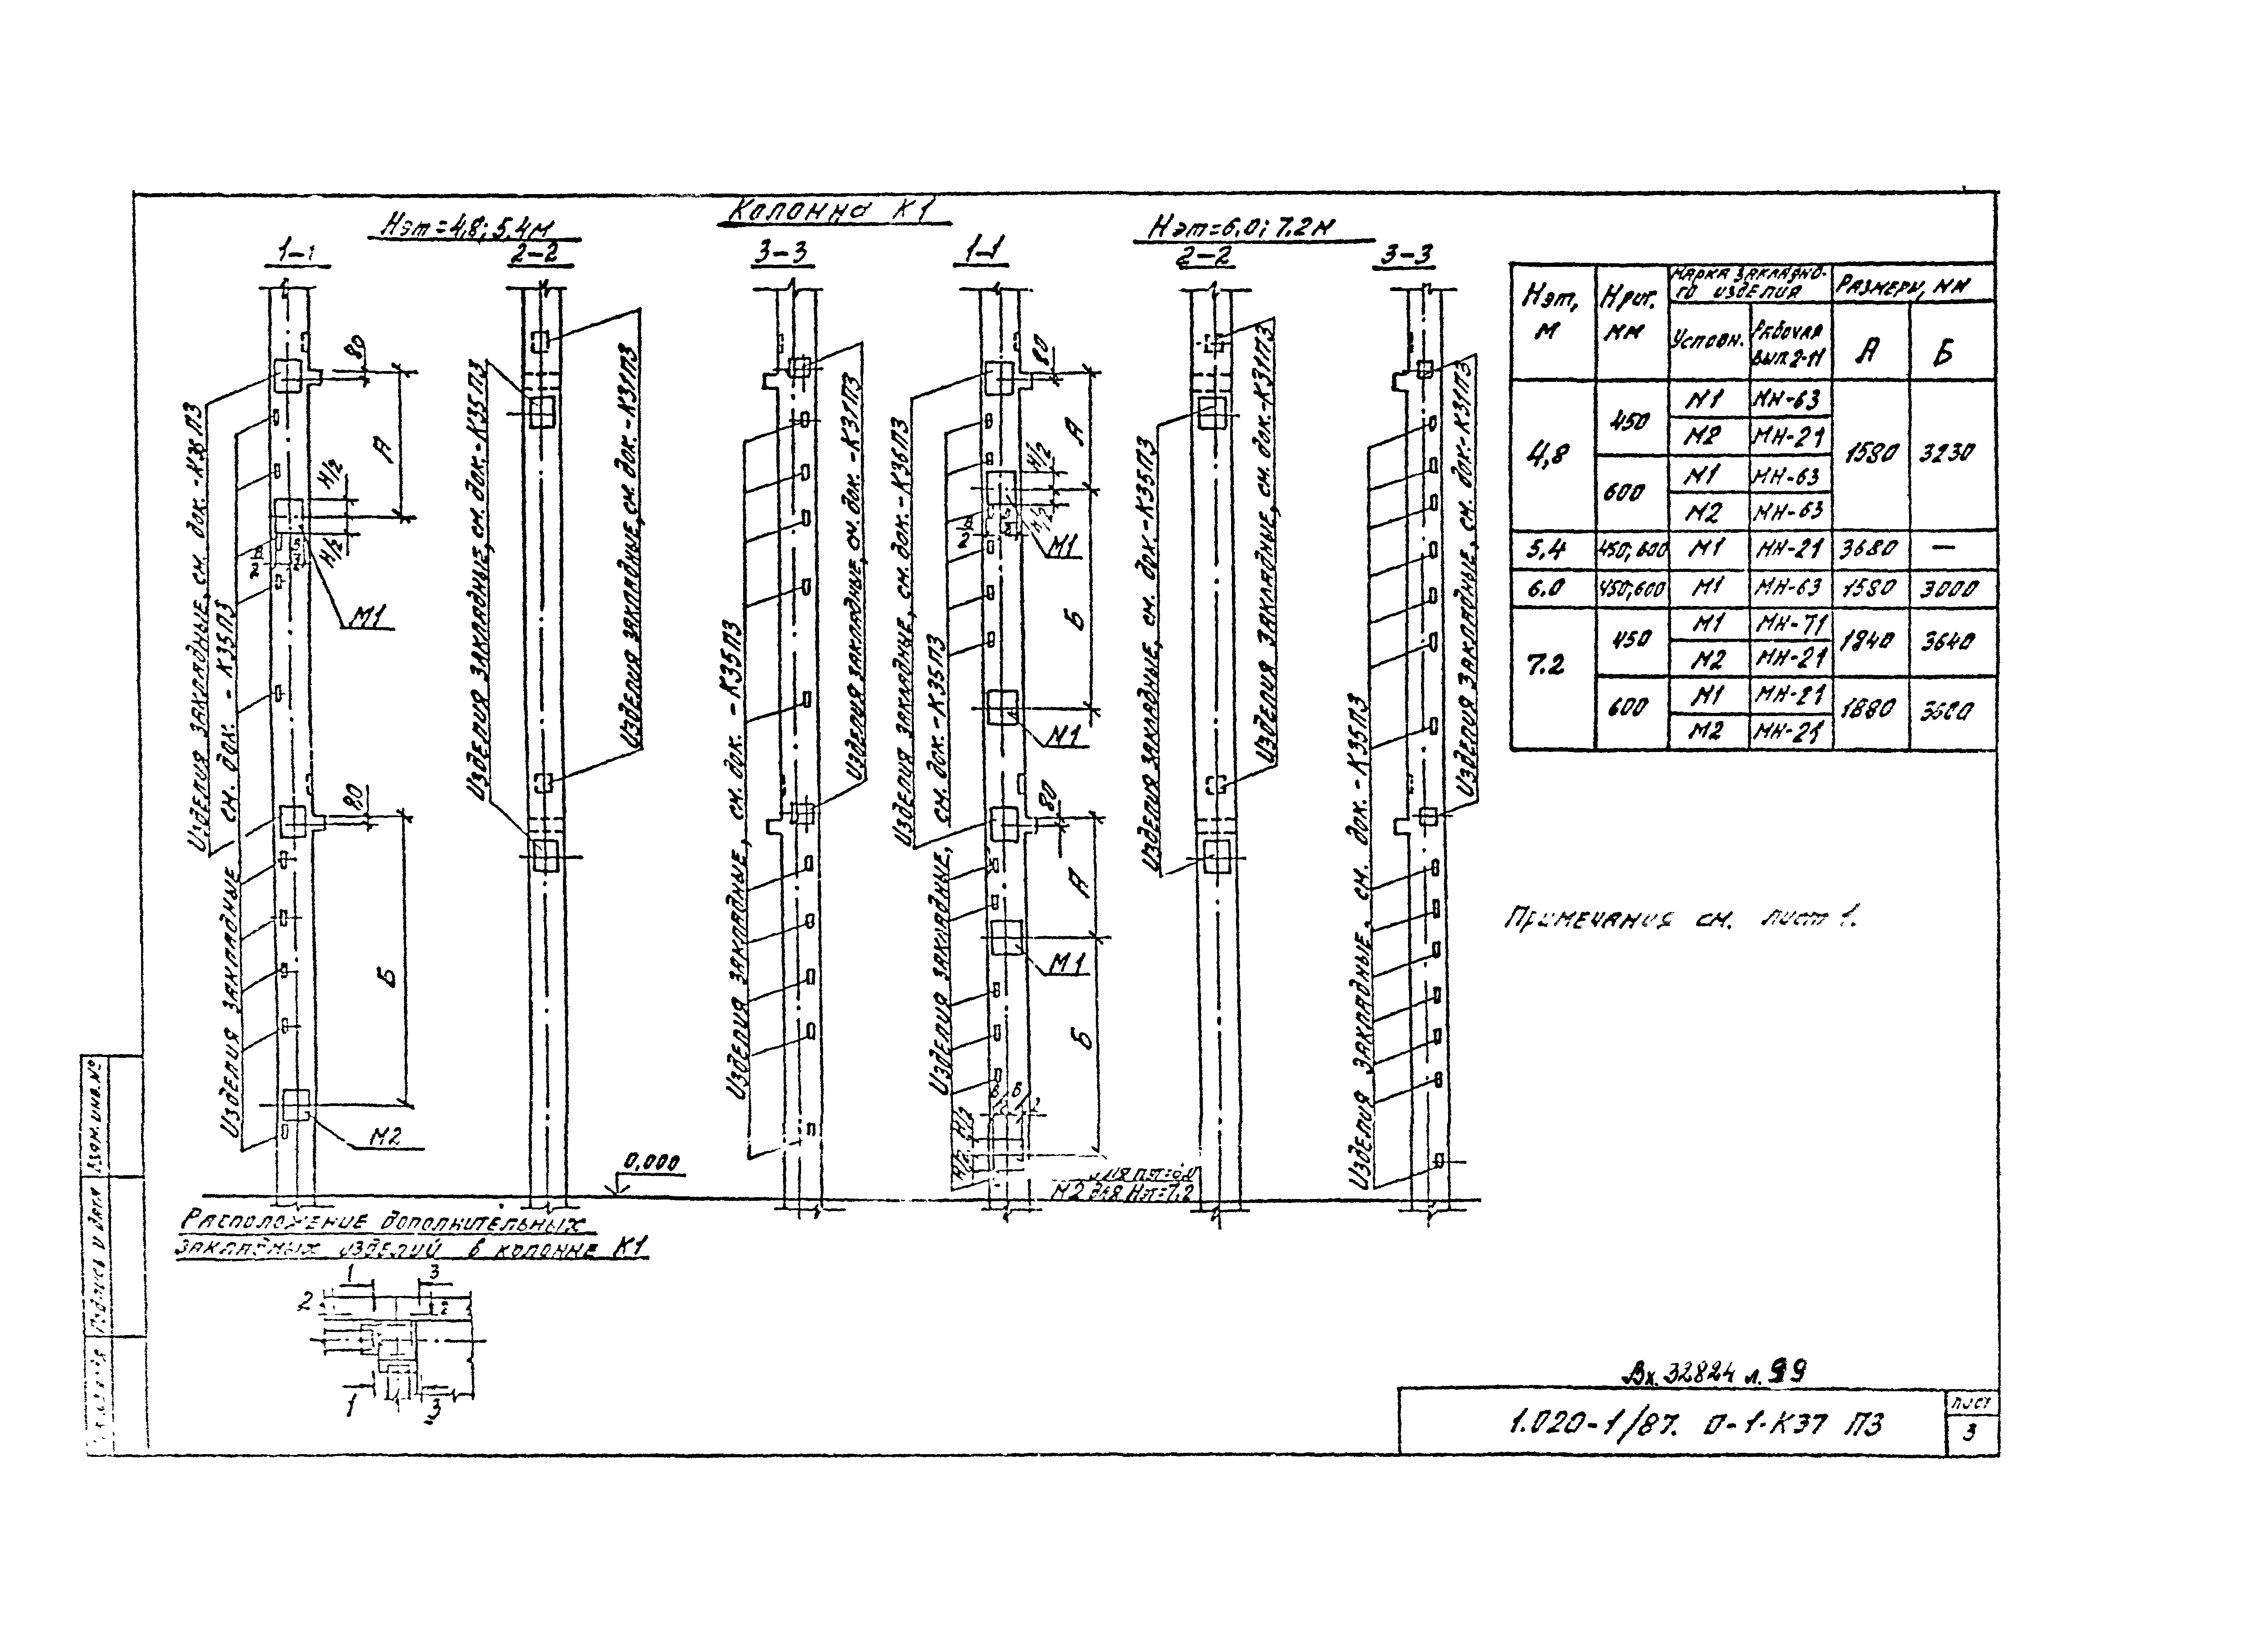 Колонна К1
Нэт=4,8; 5,4м
Нэт=6,0; 7.2м
1-1
2-2
3-3
1-1
2-2
3-3
Изделия закладные, см. док.-К36ПЗ
Изделия закладные
см. док. - К35ПЗ
80
А
Н/2
Н/2
В
2
М1
80
Б
М2
Изделия закладные, см. док.-К35ПЗ
Изделия закладные, см. док.-К31ПЗ
0,000
Изделия закладные, см. док. -К35ПЗ
Изделия закладные, см. док. -К31ПЗ
Изделия закладные, см. док.-К36ПЗ
Изделия закладные, см. док.-К35ПЗ
80
А
Н/2
Н/2
В
2
М1
Б
М1
80
А
М1
Б
Н/2
Н/2
М2 для Нэт=7,2
Изделия закладные, см. док.-К35ПЗ
Изделия закладные, см. док.-К31ПЗ
Изделия закладные, см. док.-К35ПЗ
Изделия закладные, см. док.-К31ПЗ
Нэт, м
Нриг. мм
Марка закладно-
го изделия
Размеры, мм
Условн.
Рабочая вып.2-11
А
Б
4,8
450
М1 МН-63
М2 МН-21
600
М1 МН-63
М2 МН-63
1580 3230
5,4 450; 600 М1 МН-21 3680 —
6.0 450;600 М1 МН-63 1580 3000
7.2
450
М1 МН-71
М2 МН-21
1840 3640
600
М1 МН-21
М2 МН-21
1880
Примечания см. лист 1.
Расположение дополнительных
закладных изделий в колонне К1
1
3
2
2
1
3
Взам. инв. №
Подпись и дата
Вх. 32824 л. 99
1.020-1/87. 0-1-К37 ПЗ
Лист
3